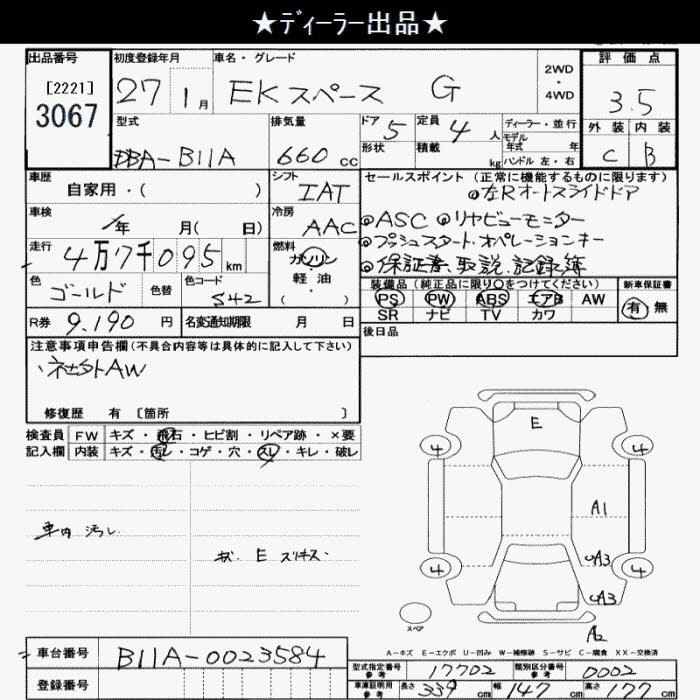 ★ディーラー出品★
出品番号
[2221]
3067
初度登録年月
27 1月
車名・グレード
EKスペース G
2WD
・
4WD
評価点
3.5
外装 内装
C B
型式
DBA-B11A
排気量
660 cc
ドア 5
形状
定員 4 人
積載 kg
ディーラー・並行
モデル
年式 年
ハンドル 左・右
車歴
自家用・( )
シフト
IAT
セールスポイント (正常に機能するものに限ります)
◎左Rオートスライドドア
◎ASC ◎リヤビューモニター
◎プッシュスタート・オペレーションキー
◎保証書、取説、記録簿
車検
年 月( 日)
冷房
AAC
走行
4万7千095 km
燃料
ガソリン
軽油
( )
色
ゴールド
色替
色コード
S42
装備品 (純正品に限り○をつけてください)
PS PW ABS エアB AW
SR ナビ TV カワ
新車保証書
有 無
R券
9,190 円
名変通知期限 月 日
後日品
注意事項申告欄(不具合内容等は具体的に記入して下さい)
・社外AW
修復歴 有 [箇所 ]
検査員
記入欄
FW キズ・飛石・ヒビ割・リペア跡・×要
内装 キズ・汚レ・コゲ・穴・スレ・キレ・破レ
車内 汚レ
キズ、E スリキズ・
E
4 4
A1
A3
4 4
A3
スペア
A2
A-キズ E-エクボ U-凹み W-補修跡 S-サビ C-腐食 XX-交換済
車台番号
B11A-0023584
登録番号
型式指定番号
参考
17702
類別区分番号
参考
0002
車庫証明用
参考
長さ 339 cm 幅 147 cm 高さ 177 cm